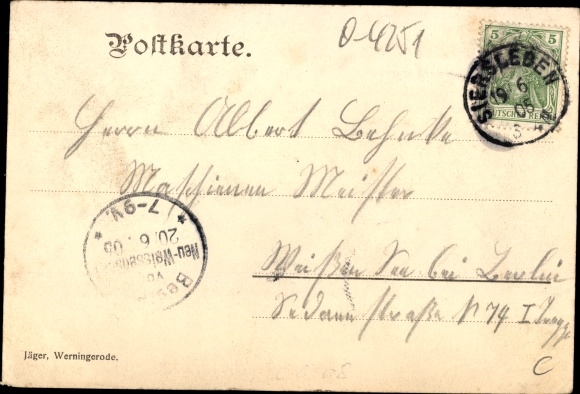 Postkarte.
0-4251
5 5
SIERSLEBEN
19 6
05
DEUTSCHES REICH
Herrn Albert Behnke
Maschienen Meister
Weißen See bei Berlin
Sedanstraße N 74 I
7-9V.
20.6.05
Neu-Weissensee
Jäger, Werningerode.
C